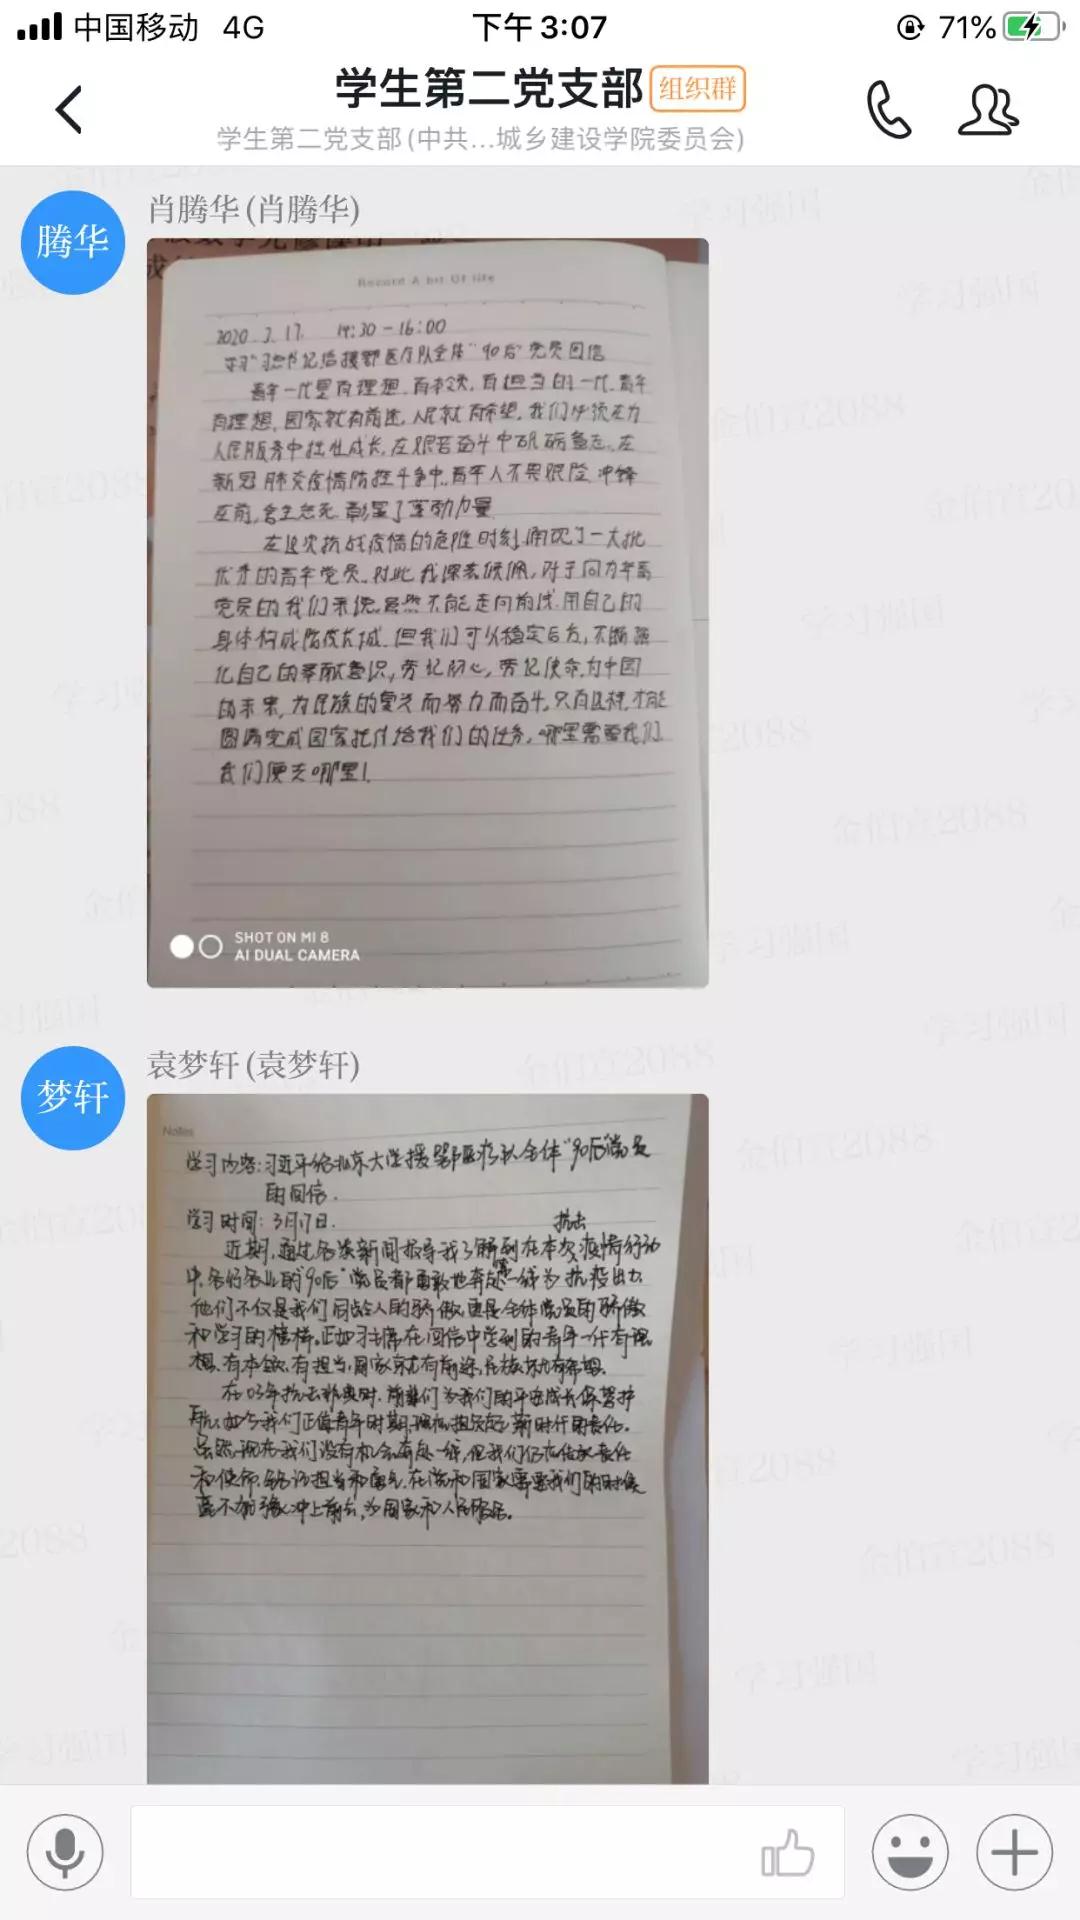 中国移动 4G 下午3:07 71%
学生第二党支部 组织群
学生第二党支部(中共...城乡建设学院委员会)
腾华
肖腾华(肖腾华)
Record A bit Of life
2020.3.17. 14:30-16:00
青年一代是有理想、有本领、有担当的一代.青年
有理想,国家就有前途,人民就有希望,我们必须在为
人民服务中茁壮成长,在艰苦奋斗中砥砺意志,在
新冠肺炎疫情防控斗争中,青年人不畏艰险 冲锋
在前,舍生忘死 彰显了青春力量
在这次抗战疫情的危难时刻,涌现了一大批
优秀的青年党员.对此我深表佩服,对于同为年轻
党员的我们来说,虽然不能走向前线.用自己的
身体构成防疫长城.但我们可以稳定后方,不断强
化自己的奉献意识,牢记初心,牢记使命,为中国
的未来,为民族的复兴而努力而奋斗,只有这样,才能
圆满完成国家托付给我们的任务,哪里需要我们
我们便去哪里!
SHOT ON MI 8
AI DUAL CAMERA
梦轩
袁梦轩(袁梦轩)
Notes
学习内容:习近平给北京大学援鄂医疗队全体"90后"党员
的回信.
学习时间:3月17日.
抗击
近期,通过各类新闻报导我了解到在本次疫情行动
中,各行各业的"90后"党员都勇敢地奔赴一线为抗疫出力.
他们不仅是我们同龄人的骄傲,更是全体党员的骄傲
和学习的榜样。正如习主席在回信中学到的青年一代有理
想、有本领、有担当,国家就有前途,民族就有希望.
在03年抗击非典时,前辈们为我们的平安成长保驾护
航,如今我们正值青年时期,理应担负起新时代的责任.
虽然现在我们没有机会奔赴一线,但我们仍应传承责任
和使命,铭记担当和勇气,在党和国家需要我们的时候
毫不犹豫冲上前去,为国家和人民服务。